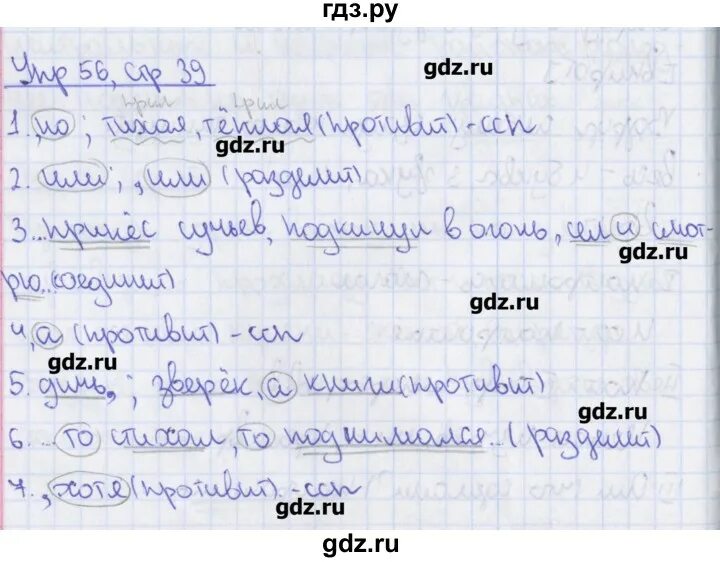 гдз.ру
Упр 56, стр 39
gdz.ru
прил прил
1. , но ; тихая, тёплая (противит) - ссп
gdz.ru
2. или ; , или (разделит)
3... принёс сучьев, подкинул в огонь, сел и смот-
gdz.ru
рю... (соединит)
gdz.ru
4, а (противит) - ссп
gdz.ru
5. дичь, ; зверёк, а книги (противит)
gdz.ru
6. ... то стихал, то поднимался... (разделит)
gdz.ru
7. , хотя (противит) - ссп
gdz.ru
gdz.ru